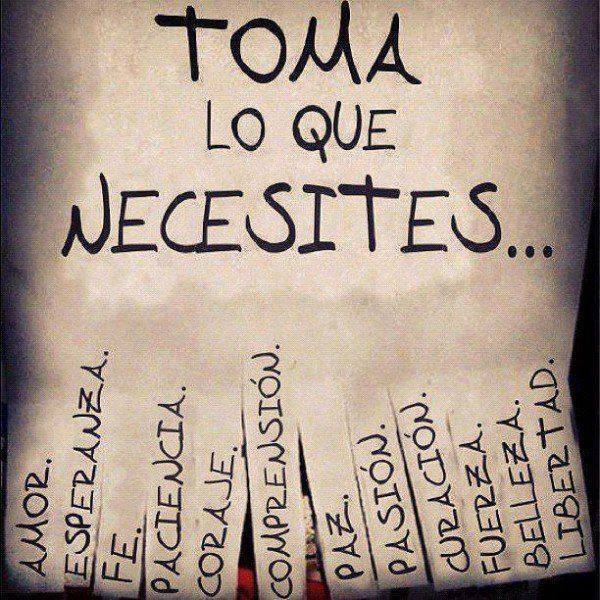 TOMA
LO QUE
NECESITES...
AMOR.
ESPERANZA.
FE.
PACIENCIA.
CORAJE.
COMPRENSIÓN.
PAZ.
PASIÓN.
CURACIÓN.
FUERZA.
BELLEZA.
LIBERTAD.